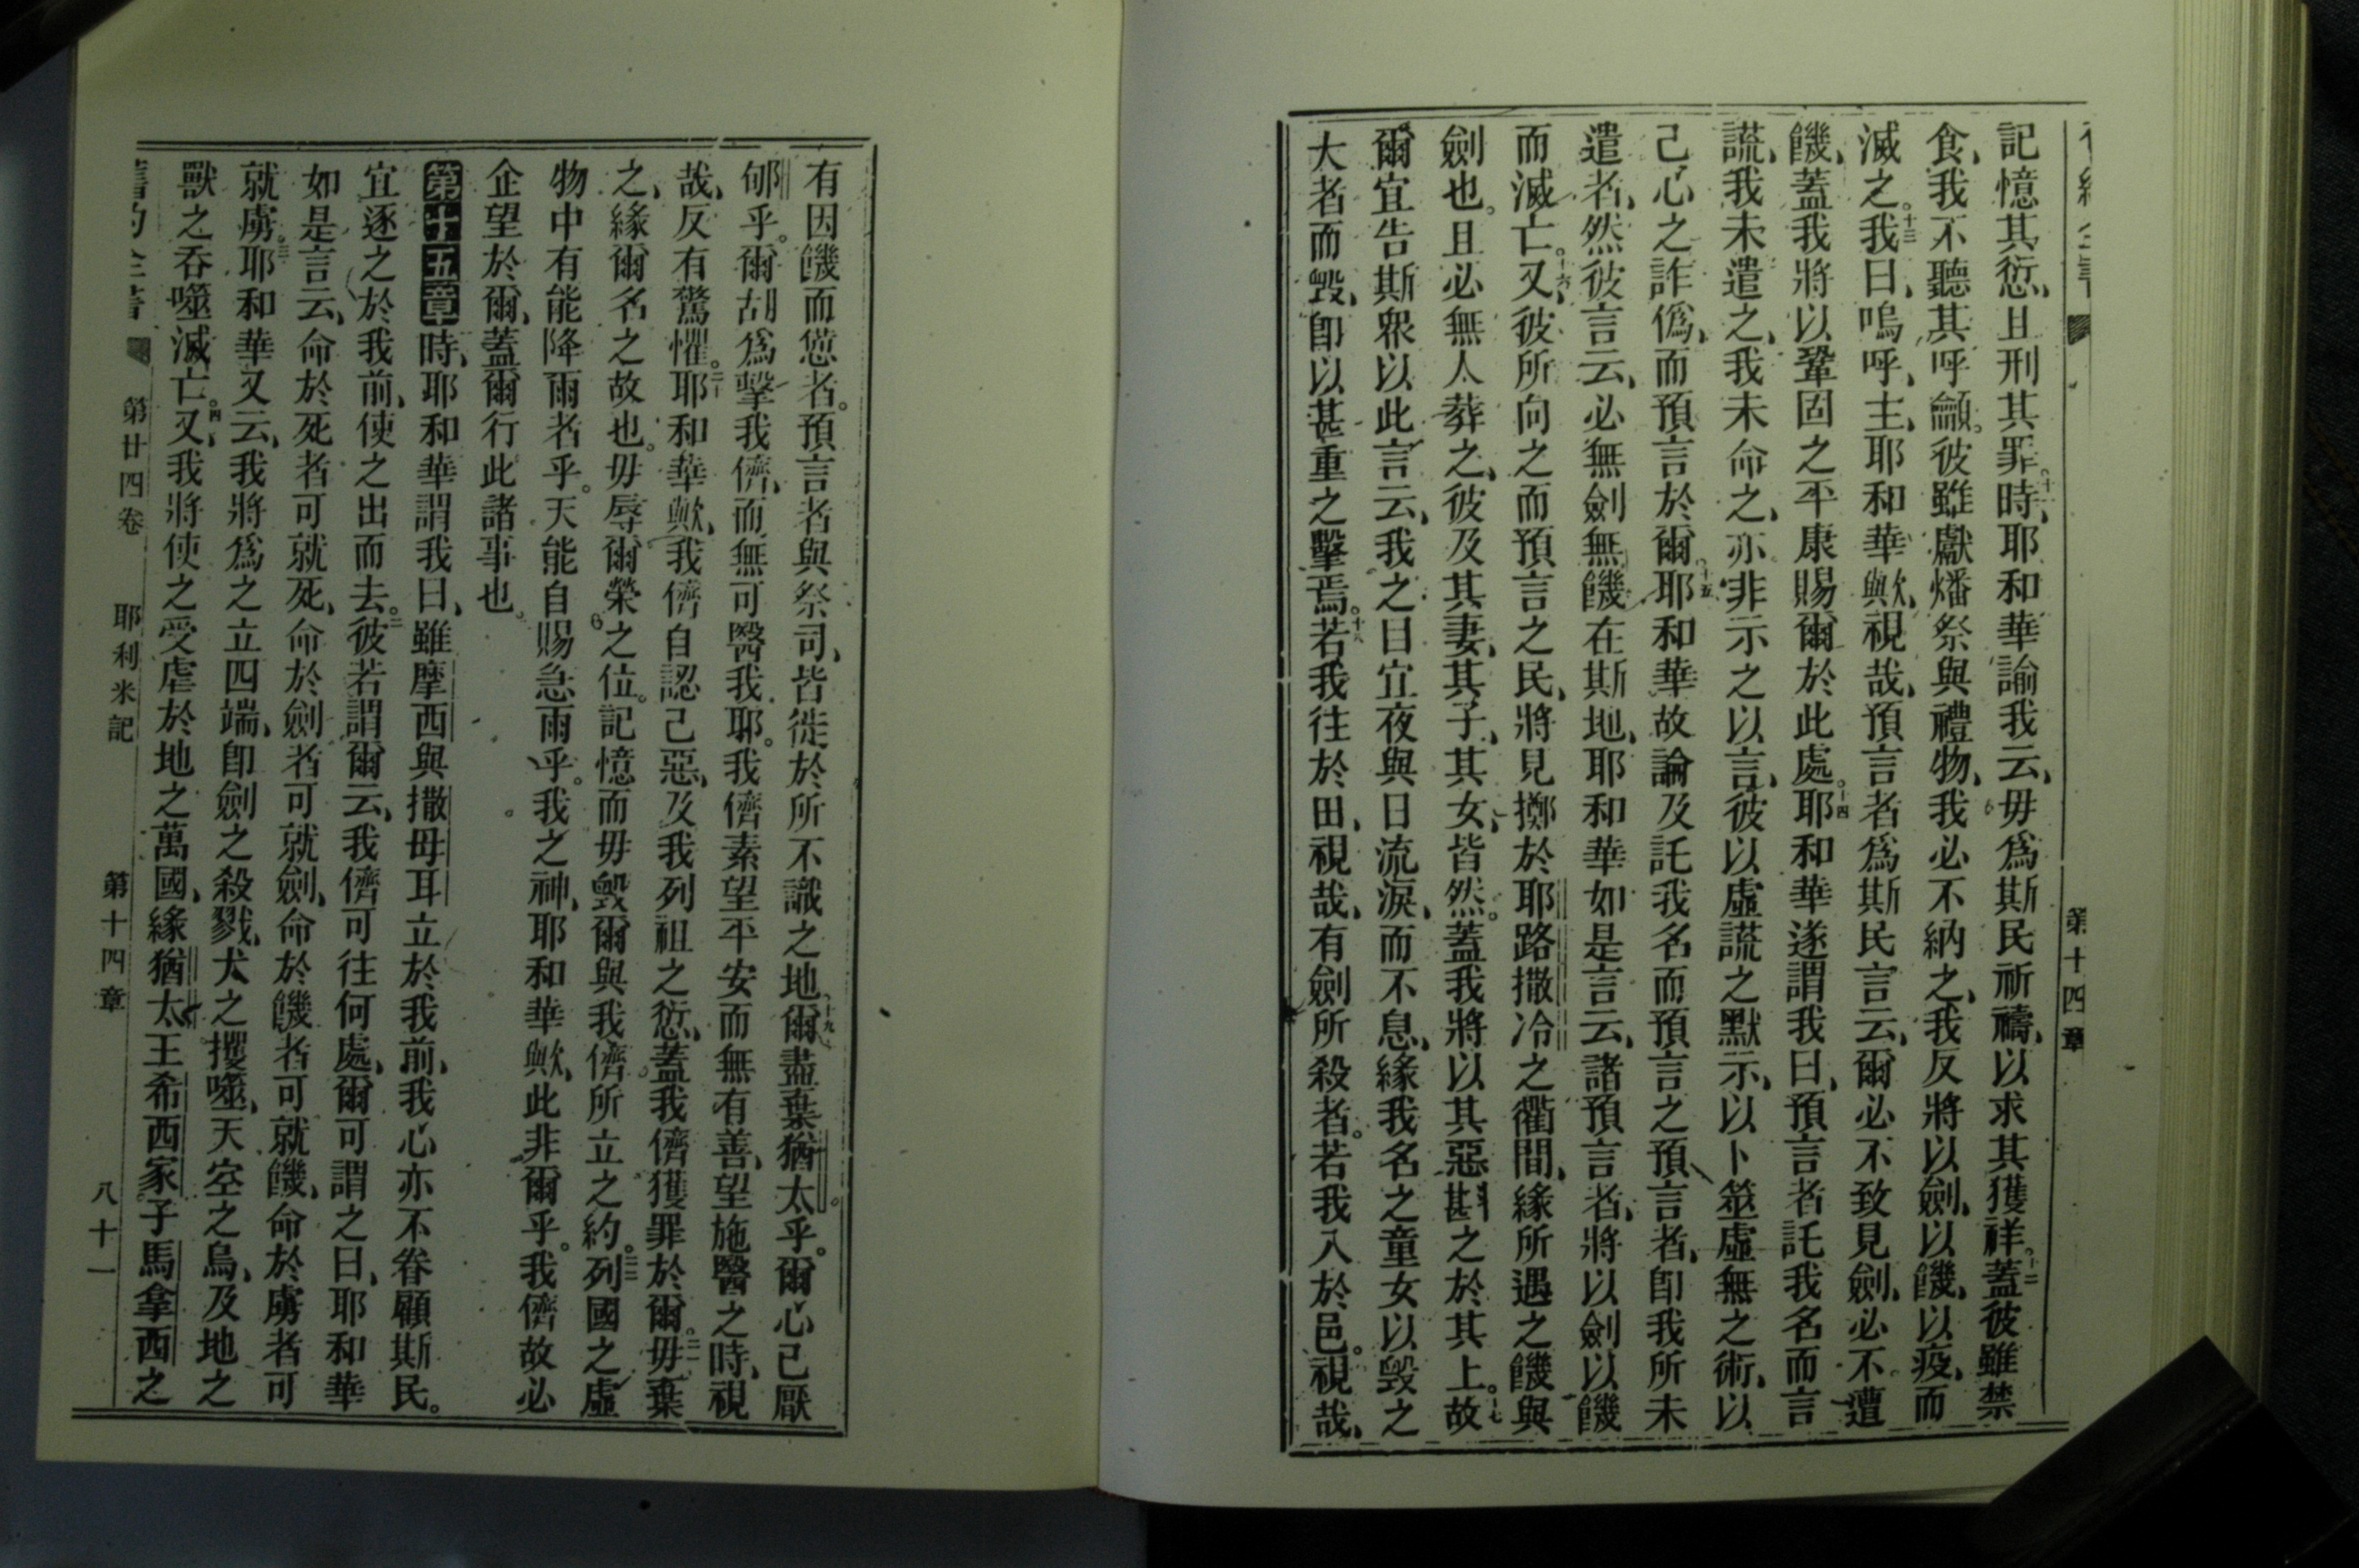 第十四章
記憶其愆、且刑其罪。十一時、耶和華諭我云、毋爲斯民祈禱、以求其獲祥。十二蓋彼雖禁
食、我不聽其呼龥。彼雖獻燔祭與禮物、我必不納之、我反將以劍、以饑、以疫、而
滅之。十三我曰、嗚呼、主、耶和華歟、視哉、預言者爲斯民言云、爾必不致見劍、必不遭
饑、蓋我將以鞏固之平康賜爾於此處。十四耶和華遂謂我曰、預言者託我名而言
謊、我未遣之、我未命之、亦非示之以言、彼以虛謊之默示、以卜筮虛無之術、以
己心之詐僞、而預言於爾。十五耶和華故論及託我名而預言之預言者、卽我所未
遣者、然彼言云、必無劍無饑在斯地、耶和華如是言云、諸預言者、將以劍以饑
而滅亡。十六又、彼所向之而預言之民、將見擲於耶路撒冷之衢間、緣所遇之饑與
劍也。且必無人葬之、彼及其妻、其子、其女、皆然。蓋我將以其惡斟之於其上。十七故
爾宜告斯衆以此言云、我之目宜夜與日流淚、而不息、緣我名之童女以毀之
大者而毀、卽以甚重之擊焉。十八若我往於田、視哉、有劍所殺者。若我入於邑。視哉、
有因饑而憊者。預言者與祭司、皆徙於所不識之地、十九爾盡棄猶太乎。爾心已厭
郇乎。爾胡爲擊我儕、而無可醫我耶。我儕素望平安而無有善、望施醫之時、視
哉、反有驚懼。二十耶和華歟、我儕自認己惡、及我列祖之愆、蓋我儕獲罪於爾。二一毋棄
之、緣爾名之故也。毋辱爾榮之位。記憶而毋毀爾與我儕所立之約。二二列國之虛
物中有能降雨者乎。天能自賜急雨乎。我之神、耶和華歟、此非爾乎。我儕故必
企望於爾、蓋爾行此諸事也。
第十五章時、耶和華謂我曰、雖摩西與撒母耳立於我前、我心亦不眷顧斯民。
宜逐之於我前、使之出而去。二彼若謂爾云、我儕可往何處、爾可謂之曰、耶和華
如是言云、命於死者可就死、命於劍者可就劍、命於饑者可就饑、命於虜者可
就虜。三耶和華又云、我將爲之立四端、卽劍之殺戮、犬之攫噬、天空之鳥、及地之
獸之吞噬滅亡。四又、我將使之受虐於地之萬國、緣猶太王希西家子馬拿西之
舊約全書 第廿四卷 耶利米記 第十四章 八十一